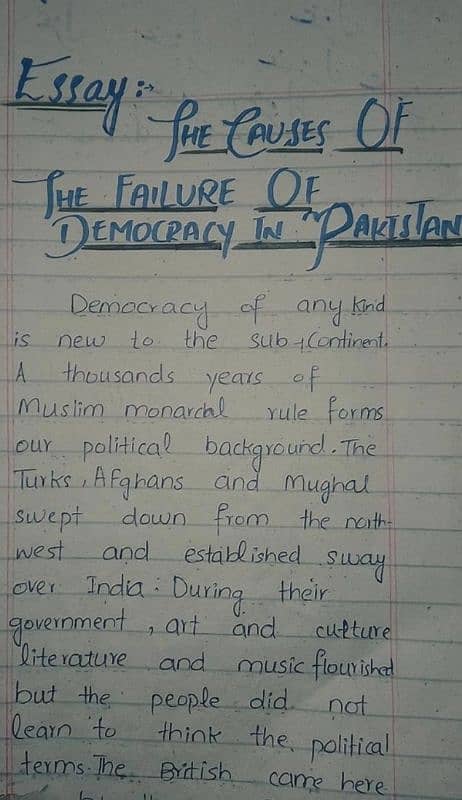 Essay:-
THE CAUSES OF
THE FAILURE OF
DEMOCRACY IN "PAKISTAN
Democracy of any kind
is new to the sub-Continent.
A thousands years of
Muslim monarchal rule forms
our political background. The
Turks, Afghans and Mughal
swept down from the north-
west and established sway
over India. During their
government, art and culture
literature and music flourished
but the people did not
learn to think the political
terms. The British came here